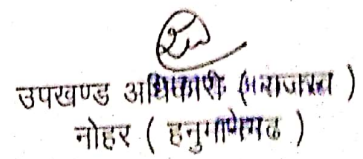 उपखण्ड अधिकारी (राजस्व)
नोहर ( हनुमानगढ )